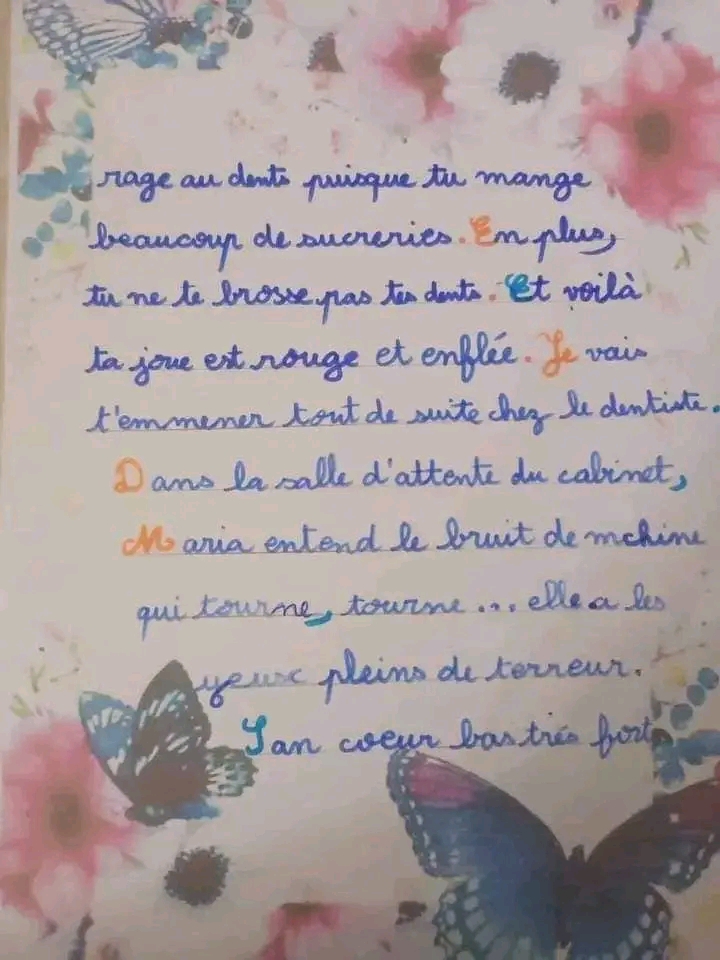 rage au dents puisque tu mange
beaucoup de sucreries. En plus,
tu ne te brosse pas tes dents. Et voilà
ta joue est rouge et enflée. Je vais
t'emmener tout de suite chez le dentiste.
Dans la salle d'attente du cabinet,
Maria entend le bruit de mchine
qui tourne, tourne ... elle a les
yeux pleins de terreur.
San coeur bas trés fort